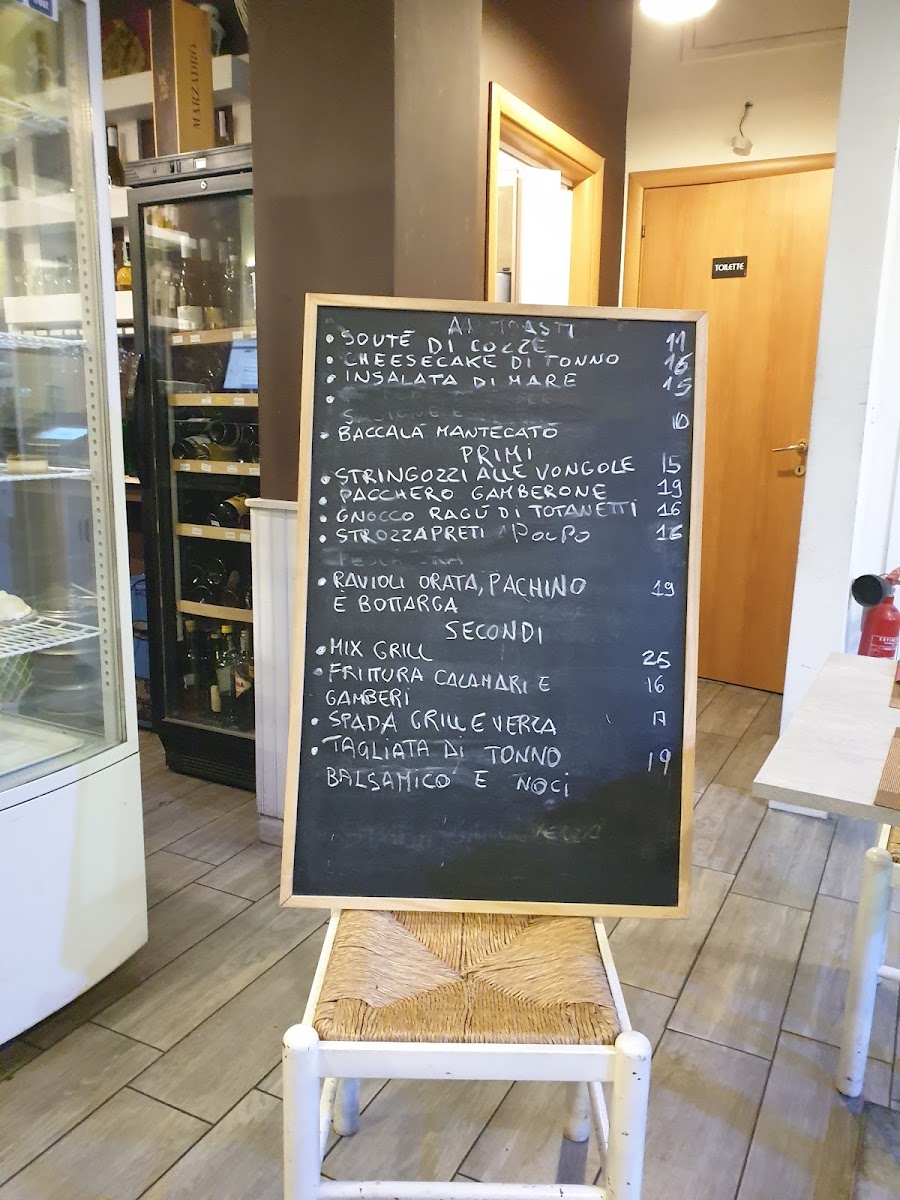 MARZADRO
TOILETTE
ANTIPASTI
• SOUTÉ DI COZZE 11
• CHEESECAKE DI TONNO 16
• INSALATA DI MARE 15
• BACCALÀ MANTECATO 10
PRIMI
• STRINGOZZI ALLE VONGOLE 15
• PACCHERO GAMBERONE 19
• GNOCCO RAGÙ DI TOTANETTI 16
• STROZZAPRETI POLPO 16
• RAVIOLI ORATA, PACHINO 19
E BOTTARGA
SECONDI
• MIX GRILL 25
• FRITTURA CALAMARI E 16
GAMBERI
• SPADA GRILL E VERZA 17
• TAGLIATA DI TONNO 19
BALSAMICO E NOCI
VERZA